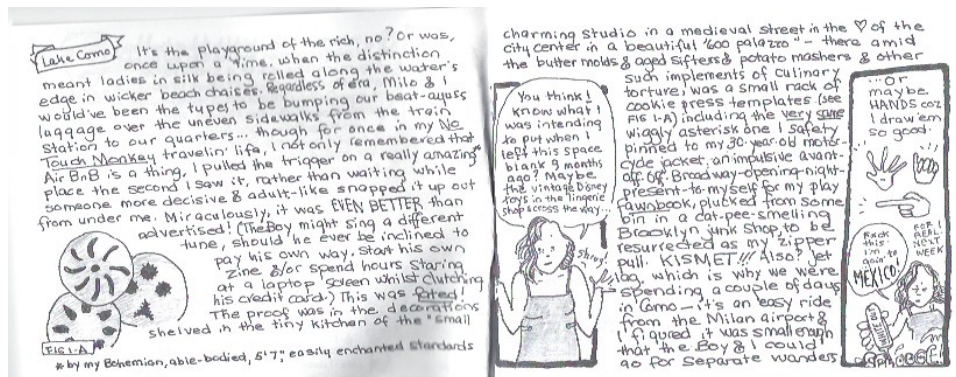 Lake Como
It's the playground of the rich, no? Or was,
once upon a time, when the distinction
meant ladies in silk being rolled along the water's
edge in wicker beach chaises. Regardless of era, Milo & I
would've been the types to be bumping our beat-ayuss
luggage over the uneven sidewalks from the train
station to our quarters... though for once in my No
Touch Monkey travelin' life, I not only remembered that
Air BnB is a thing, I pulled the trigger on a really amazing*
place the second I saw it, rather than waiting while
someone more decisive & adult-like snapped it up out
from under me. Miraculously, it was EVEN BETTER than
advertised! (The Boy might sing a different
tune, should he ever be inclined to
pay his own way, start his own
zine &/or spend hours staring
at a laptop screen whilst clutching
his credit card.) This was fated!
The proof was in the decorations
shelved in the tiny kitchen of the "small
FIG 1-A
* by my Bohemian, able-bodied, 5'7", easily enchanted standards
charming studio in a medieval street in the ♡ of the
city center in a beautiful '600 palazzo" – there amid
the butter molds & aged sifters & potato mashers & other
such implements of culinary
torture, was a small rack of
cookie press templates (see
FIG 1-A) including the very same
wiggly asterisk one I safety
pinned to my 30-year-old motor-
cycle jacket, an impulsive avant-
off-Off-Broadway-opening-night-
present-to-myself for my play
Fawnbook, plucked from some
bin in a cat-pee-smelling
Brooklyn junk shop, to be
resurrected as my zipper
pull. KISMET!!! Also? Jet
lag, which is why we were
spending a couple of days
in Como – it's an easy ride
from the Milan airport &
I figured it was small enough
that the Boy & I could
go for separate wanders
You think I
know what I
was intending
to put when I
left this space
blank 9 months
ago? Maybe
the vintage Disney
toys in the lingerie
shop across the way...
Shrug!
...or
maybe
HANDS coz
I draw 'em
so good.
Fuck
this
I'm
goin to
MEXICO!
FOR
REAL!
NEXT
WEEK